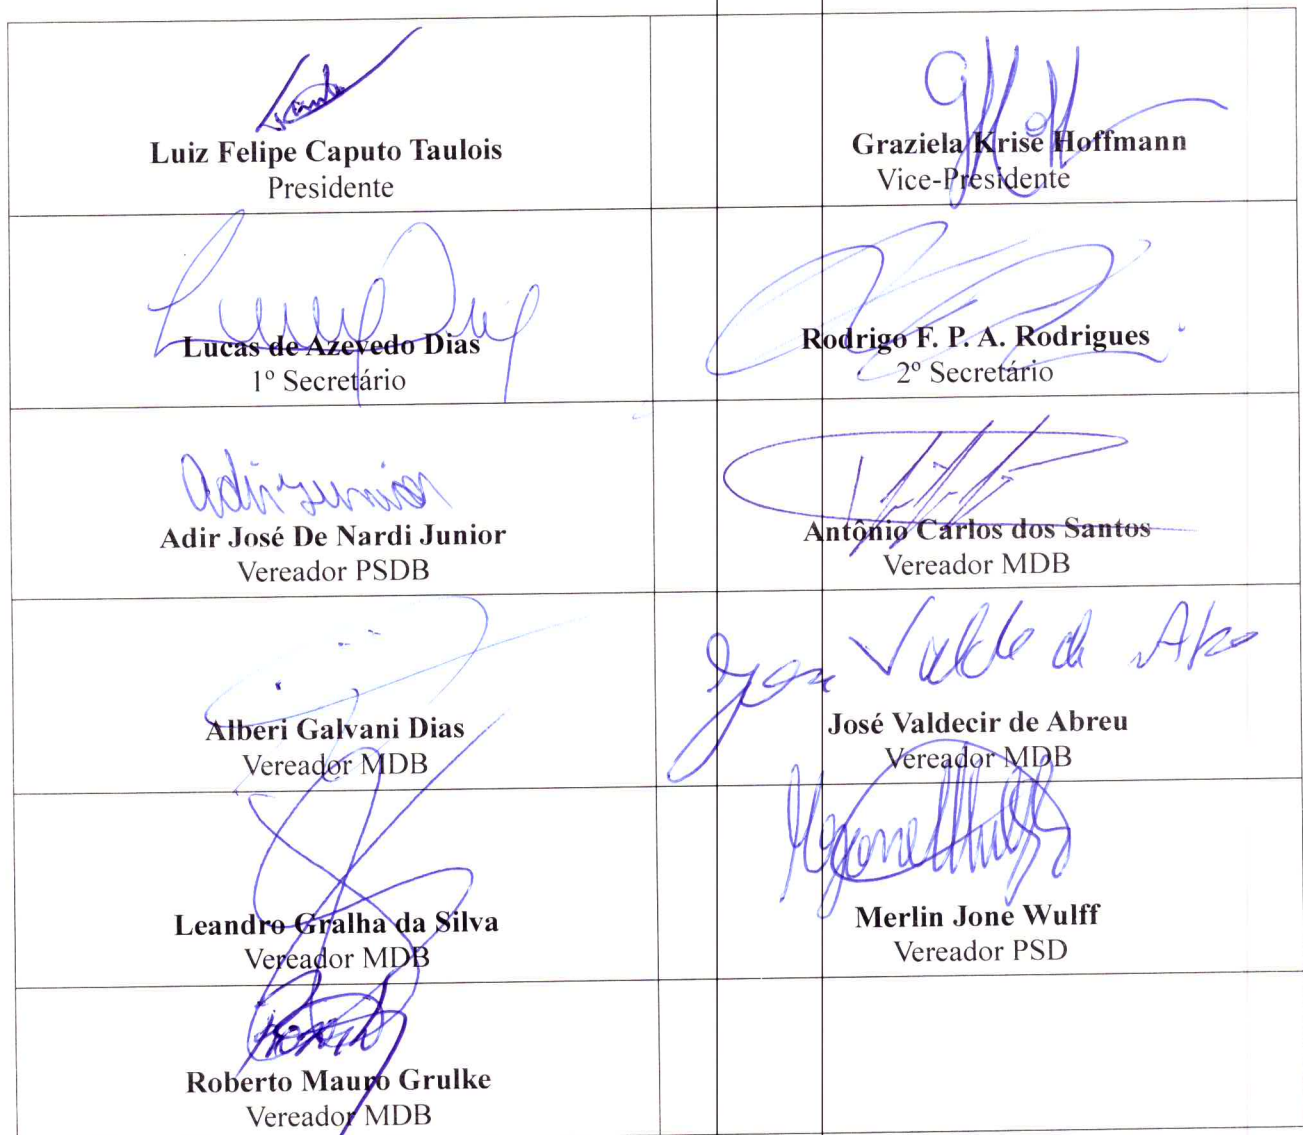 Luiz Felipe Caputo Taulois
Presidente
Graziela Krise Hoffmann
Vice-Presidente
Lucas de Azevedo Dias
1º Secretário
Rodrigo F. P. A. Rodrigues
2º Secretário
Adir Junior
Adir José De Nardi Junior
Vereador PSDB
Antônio Carlos dos Santos
Vereador MDB
Alberi Galvani Dias
Vereador MDB
José Valdecir de Abreu
Vereador MDB
Leandro Gralha da Silva
Vereador MDB
Merlin Jone Wulff
Vereador PSD
Roberto Mauro Grulke
Vereador MDB